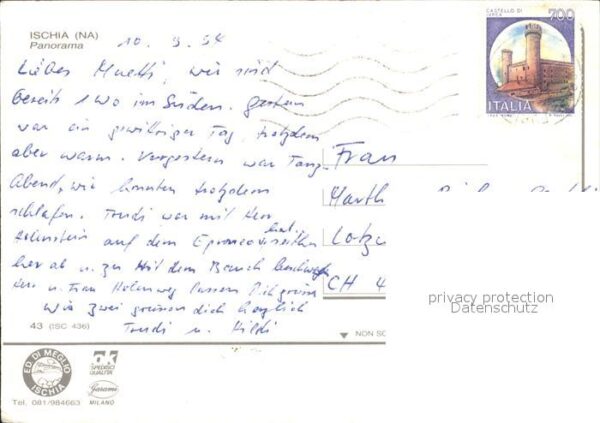 ISCHIA (NA)
Panorama
10. 9. 94
Liebes Muetti, wir sind
bereits 1 Wo im Süden. Gestern
war ein gewittriger Tag, trotzdem
aber warm. Vorgestern war Tanz-
Abend, wir konnten trotzdem
schlafen. Trudi war mit Herr
auf dem Epomeo
her ab u. zu Mit dem Bauch
Herr u. Frau Holenweg lassen Dich grüssen
Wir zwei grüssen dich herzlich
Trudi u. Hildi
CASTELLO DI
IVREA
700
ITALIA
Frau
Marth
Lotz
CH 4
privacy protection
Datenschutz
43 (ISC 436)
NON SC
ED. DI MEGLIO
ISCHIA
Tel. 081/984663
SPEDISCI
QUALITA'
Garami
MILANO